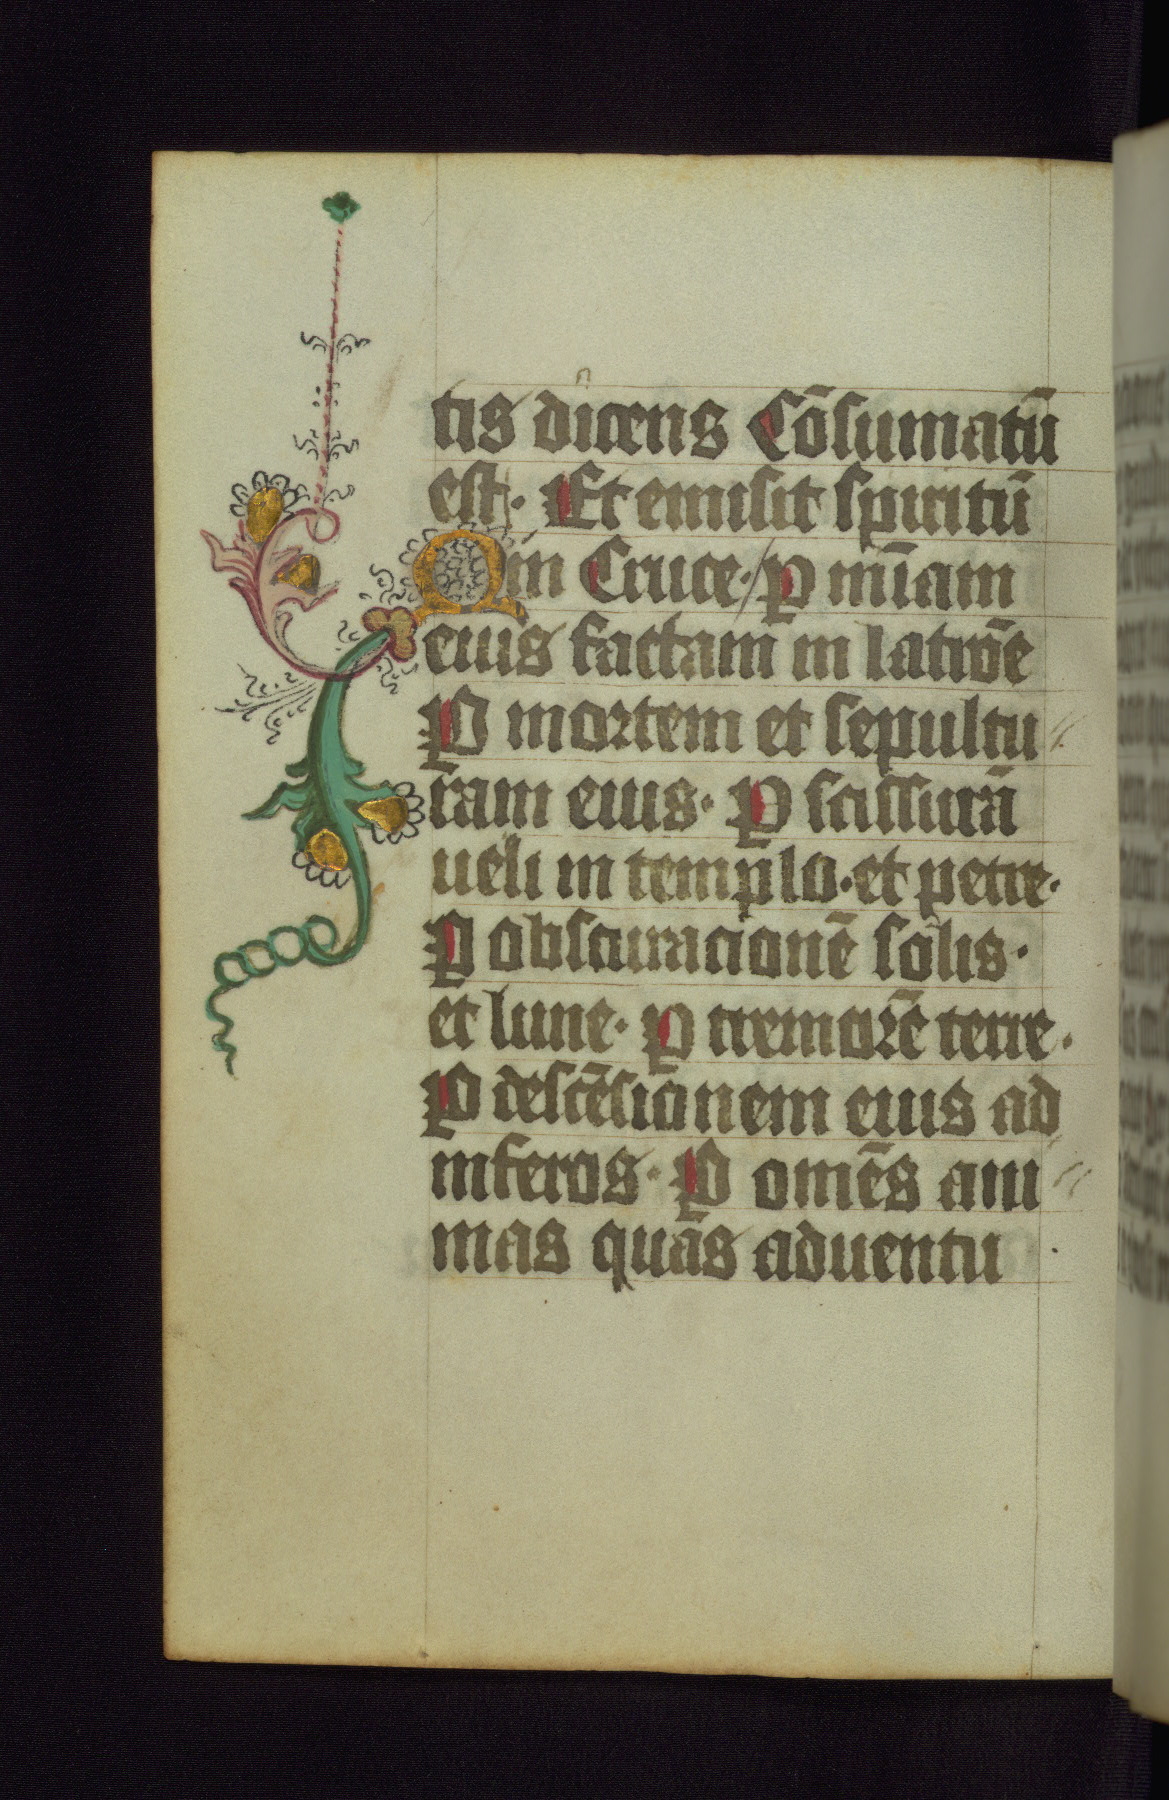 tis dicens Cōsumatū
est· Et emisit spiritū
Q in Cruce· ꝑ mīam
eius factam in latrōe
ꝑ mortem et sepultu
ram eius· ꝑ scissurā
ueli in templo· et petre·
ꝑ obscuracionē solis·
et lune· ꝑ tremorē terre·
ꝑ descēsionem eius ad
inferos· ꝑ omēs ani
mas quas aduentu